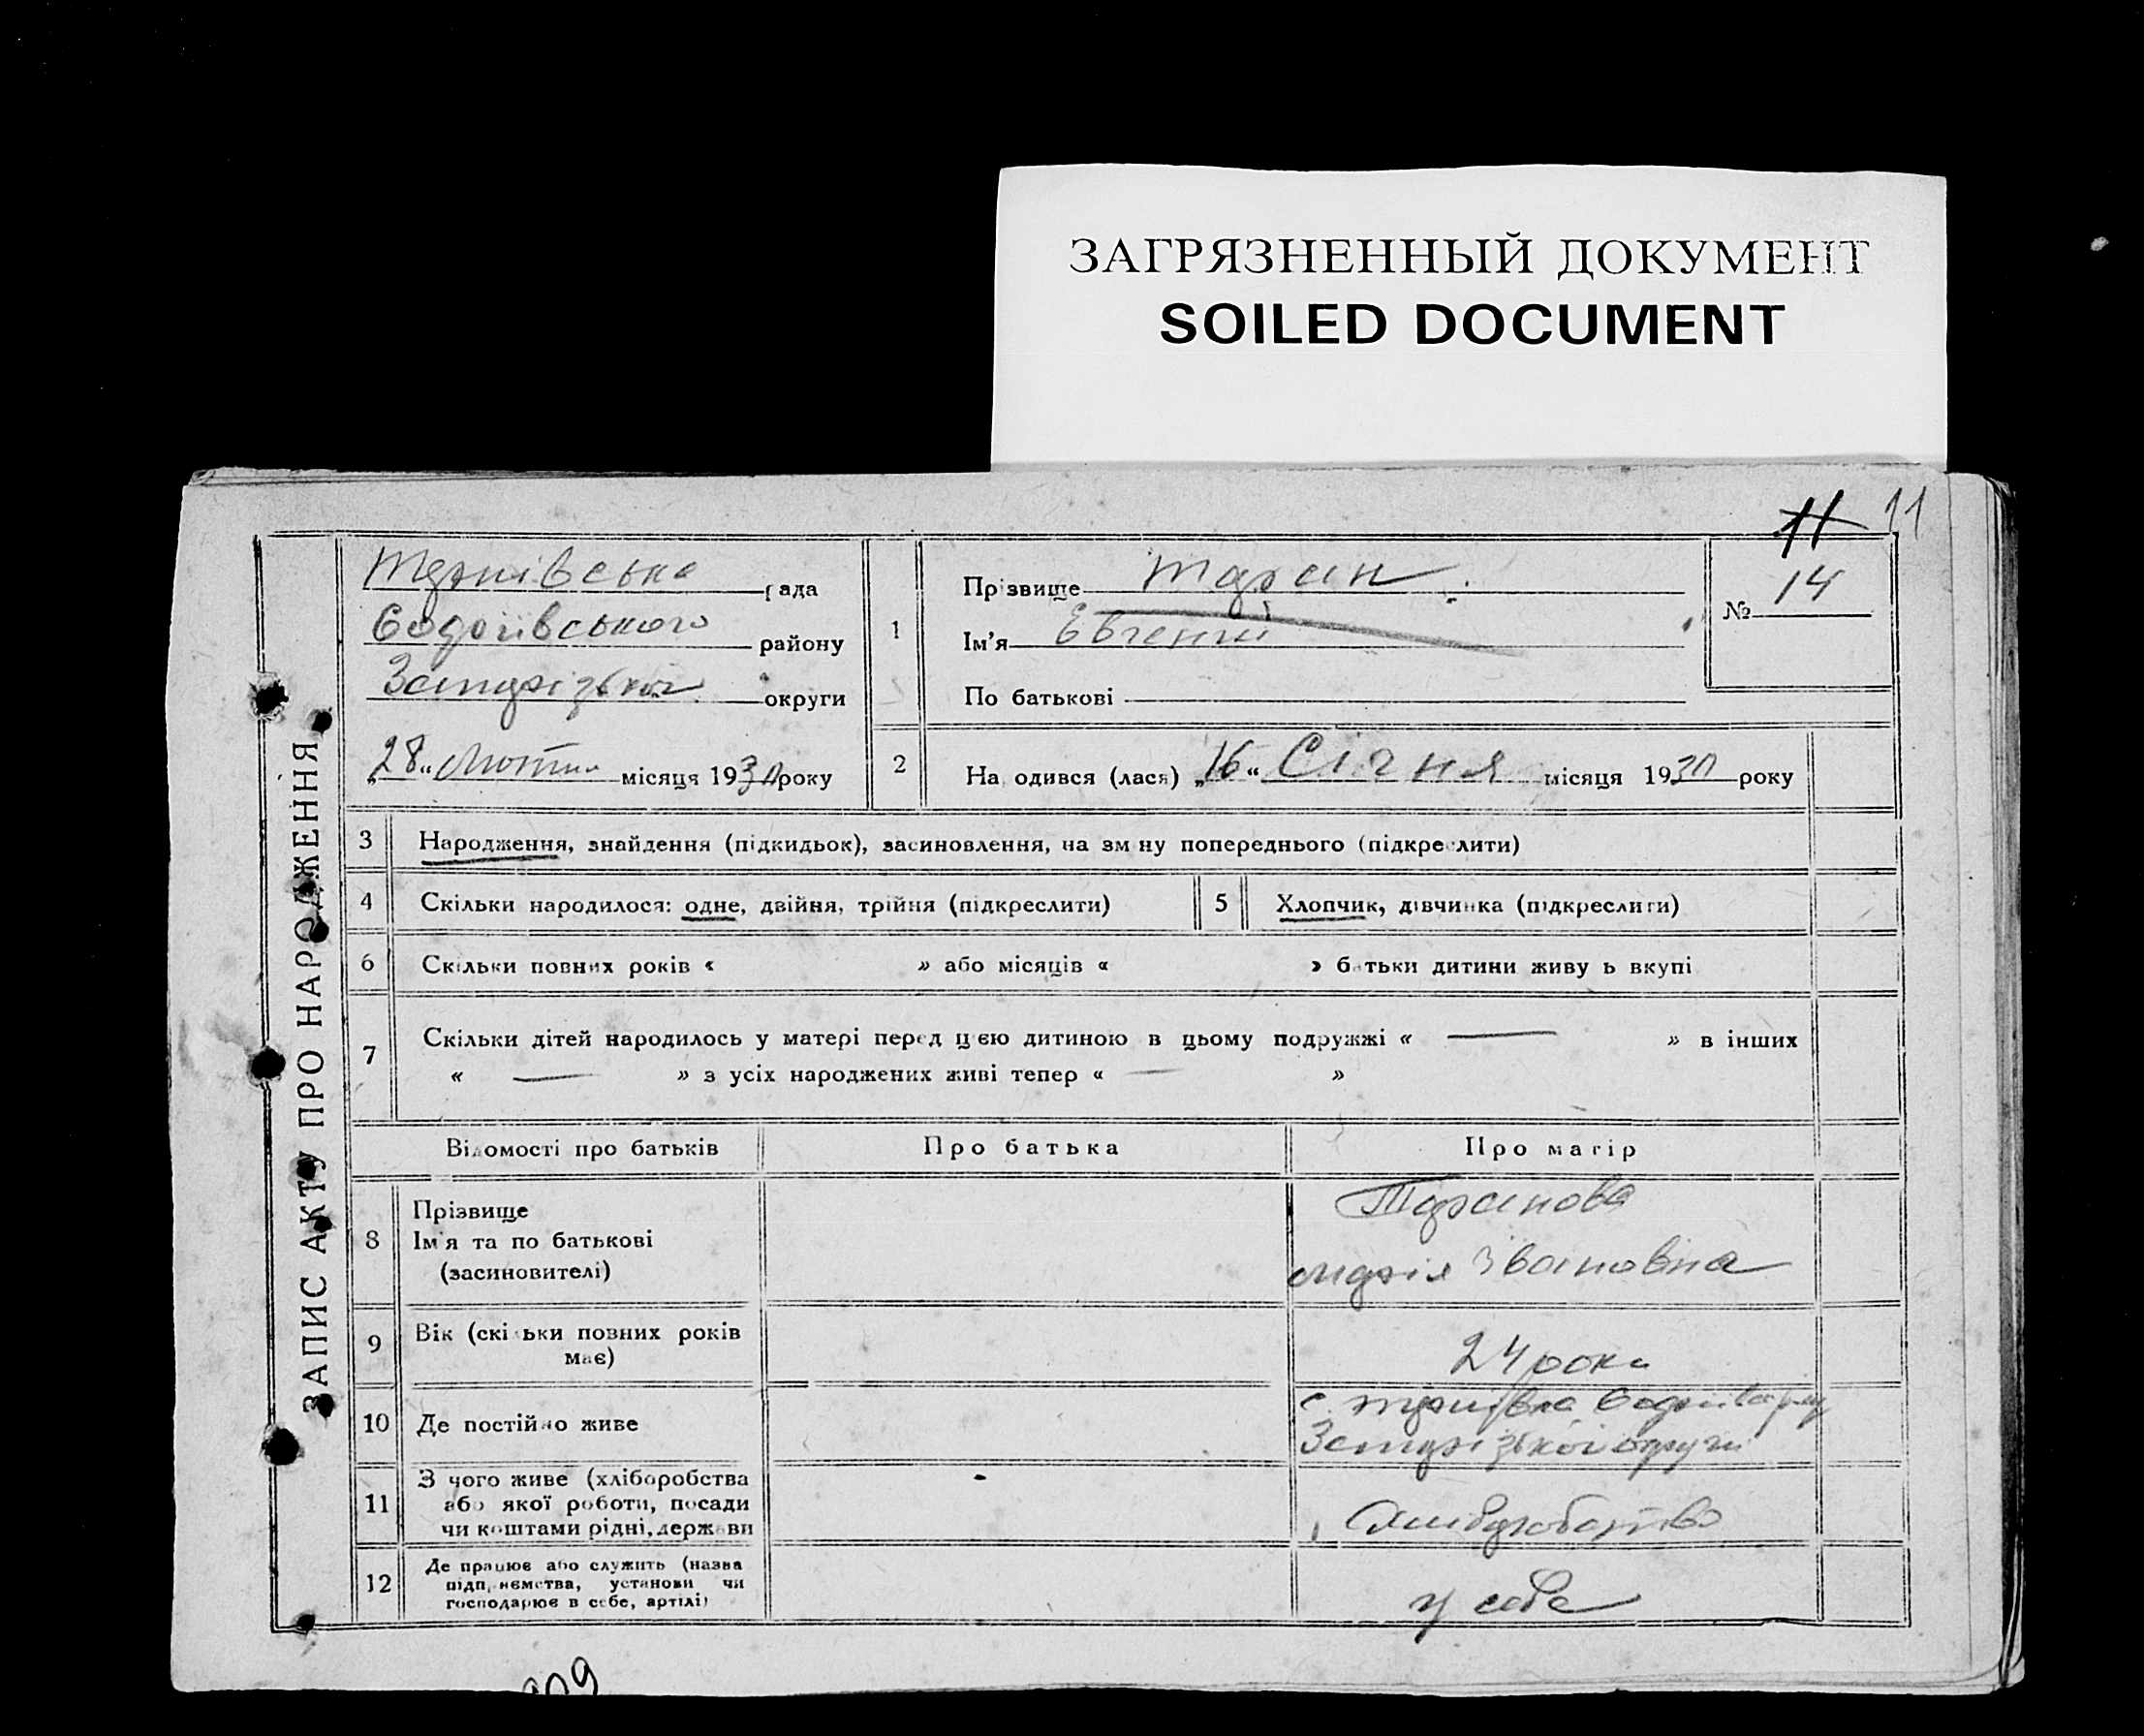 ЗАГРЯЗНЕННЫЙ ДОКУМЕНТ
SOILED DOCUMENT
11 11
ЗАПИС АКТУ ПРО НАРОДЖЕННЯ
рада
району
округи
„28“ Лютня місяця 1930 року
1
Прізвище Таран
Ім'я Евгеній
По батькові
№ 14
2
Народився (лася) „16“ Січня місяця 1930 року
3 Народження, знайдення (підкидьок), засиновлення, на зміну попереднього (підкреслити)
4 Скільки народилося: одне, двійня, трійня (підкреслити)
5 Хлопчик, дівчинка (підкреслити)
6 Скільки повних років « » або місяців « » батьки дитини живуть вкупі
7 Скільки дітей народилось у матері перед цією дитиною в цьому подружжі « — » в інших
« — » з усіх народжених живі тепер « — »
Відомості про батьків Про батька Про матір
8 Прізвище
Ім'я та по батькові
(засиновителі)
Таранова
Марія Івановна
9 Вік (скільки повних років
має)
24 роки
10 Де постійно живе
с.
округи
11 З чого живе (хліборобства
або якої роботи, посади
чи коштами рідні, держави
Хліборобство
12 Де працює або служить (назва
підприємства, установи чи
господарює в себе, артілі)
у себе
909